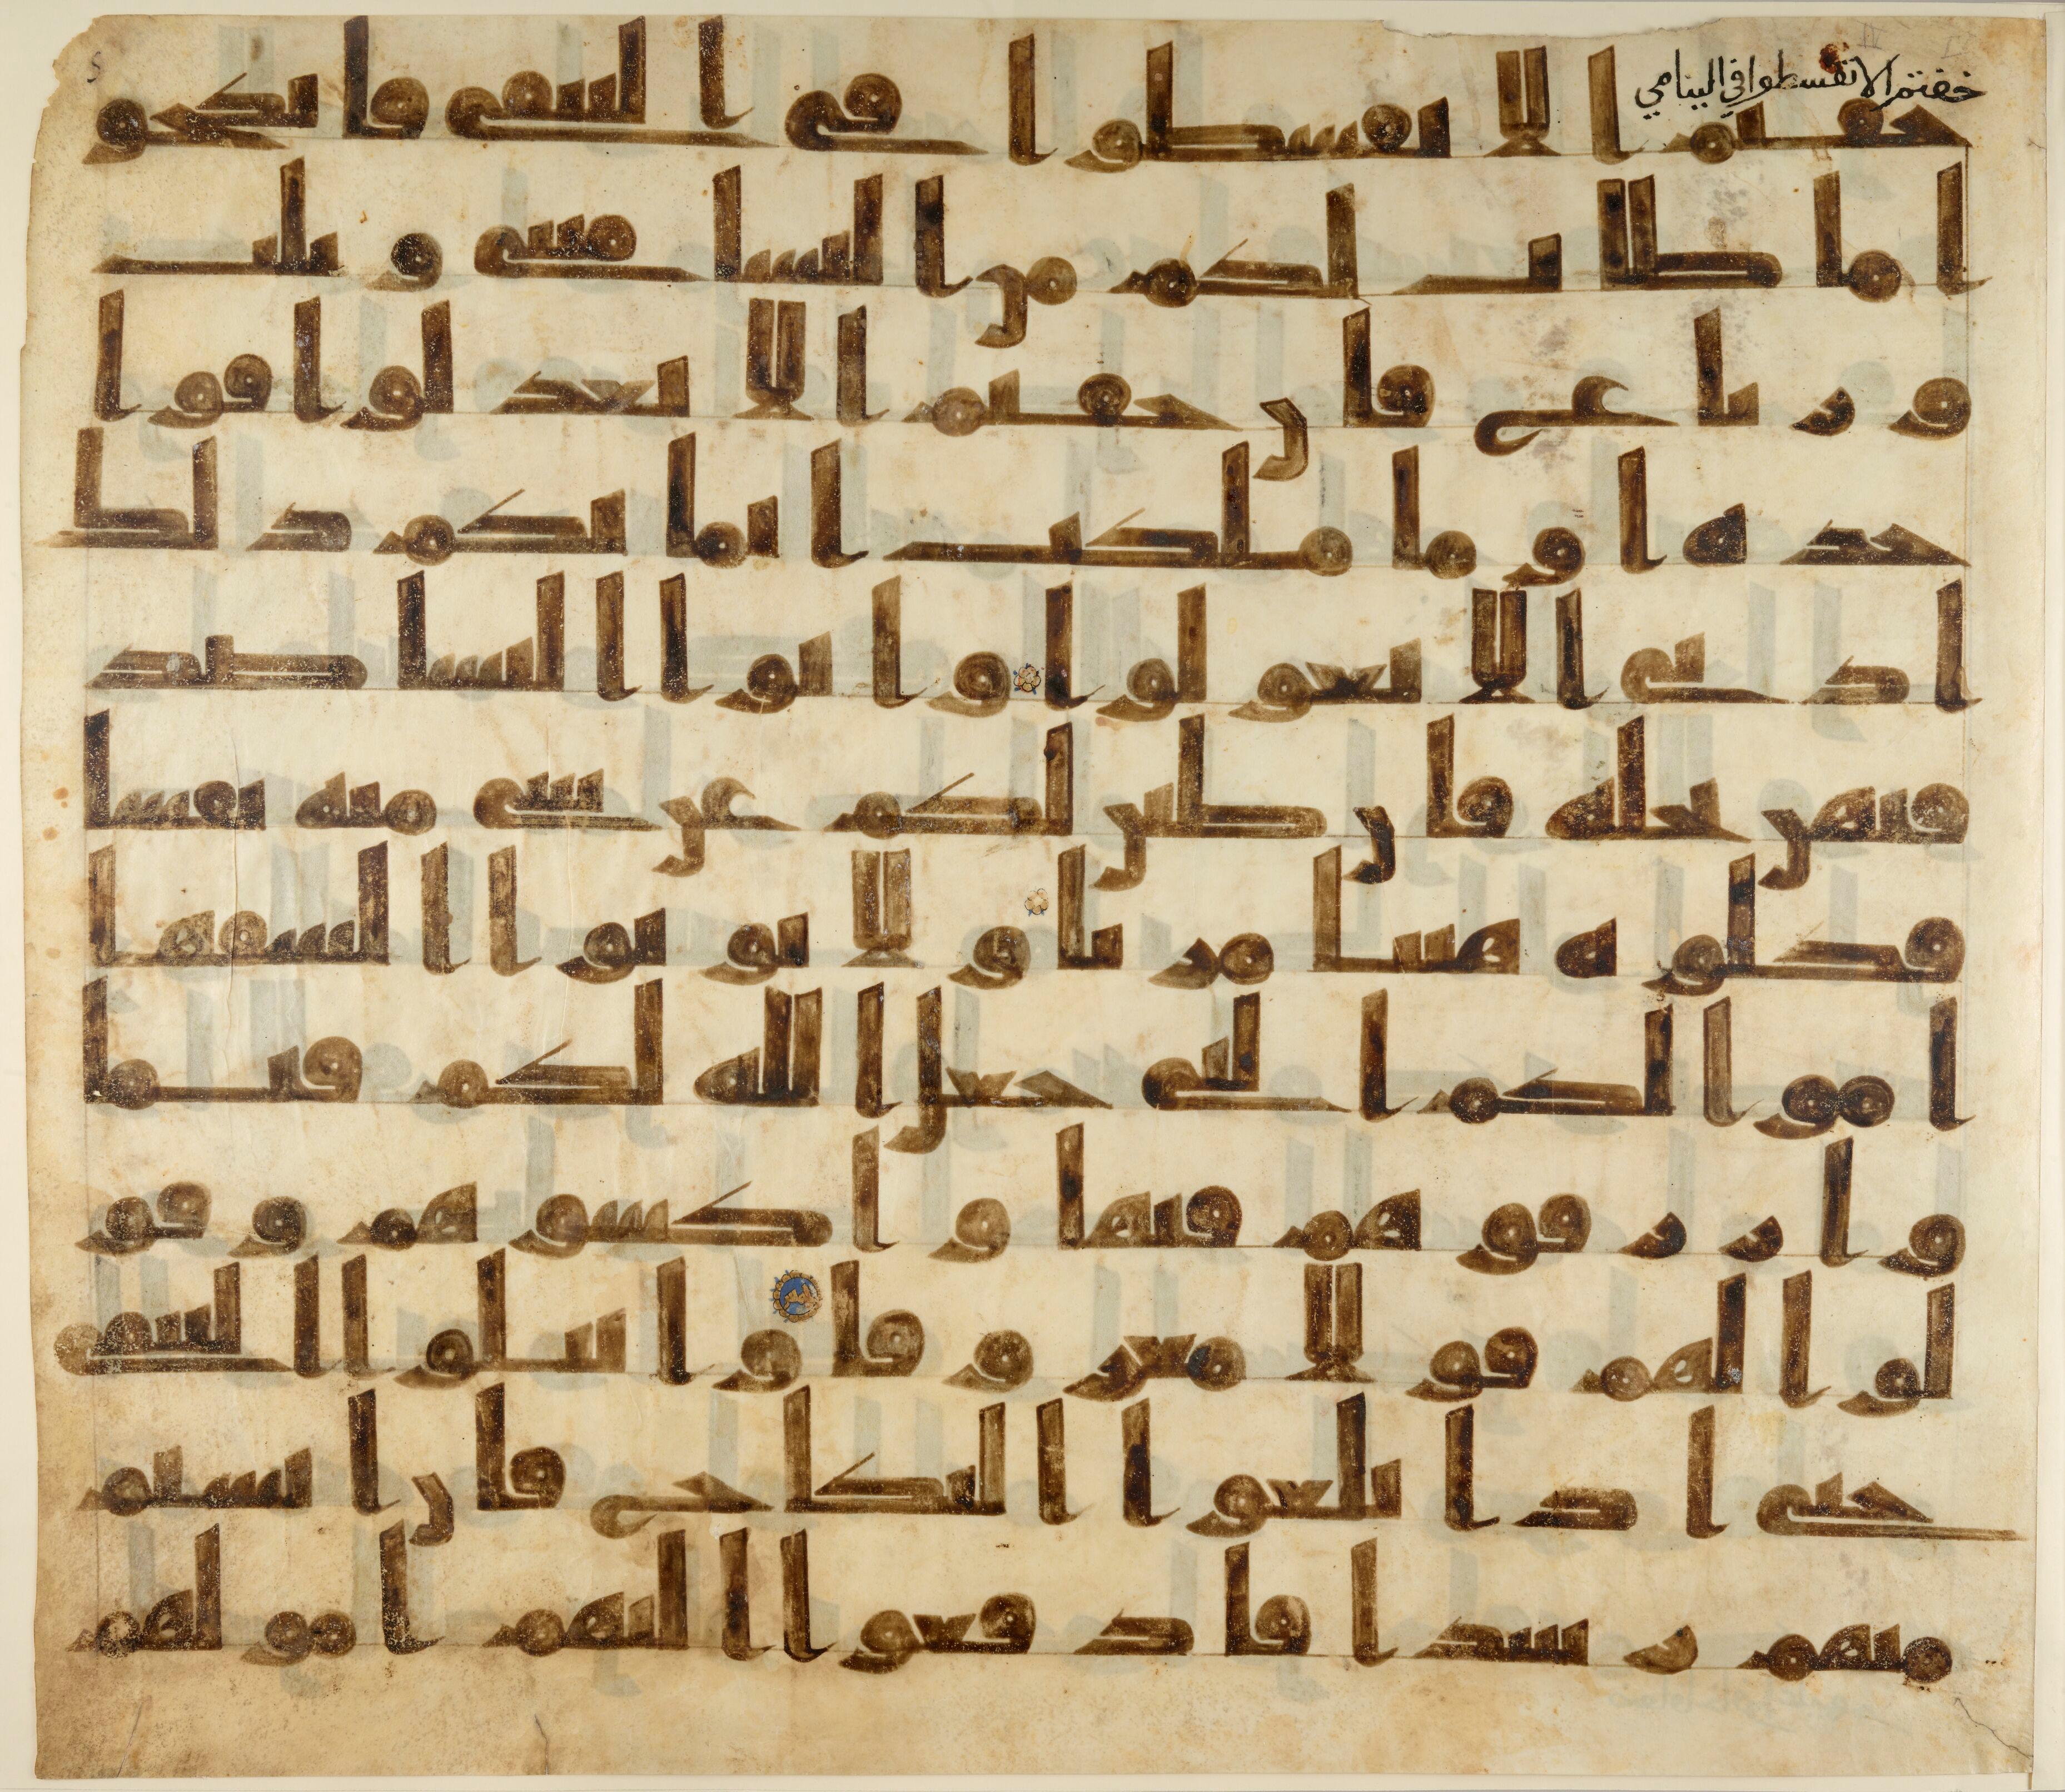 خفتم الا تقسطوا في اليتامى
خفتم الا تقسطوا في اليتمى فانكحو
ا ما طاب لكم من النسا مثنى وثلث
ورباع فان خفتم الا تعدلوا فوا
حدة او ما ملكت ايمانكم ذلك
ادنى الا تعولوا واتوا النسا صد
قتهن نحلة فان طبن لكم عن شى منه نفسا
فكلوه هنيا مريا ولا توتوا السفها
اموالكم التى جعل الله لكم قيما
وارزقوهم فيها واكسوهم وقو
لوا لهم قولا معروفا وابتلوا اليتمى
حتى اذا بلغوا النكاح فان انستم
منهم رشدا فادفعوا اليهم امولهم